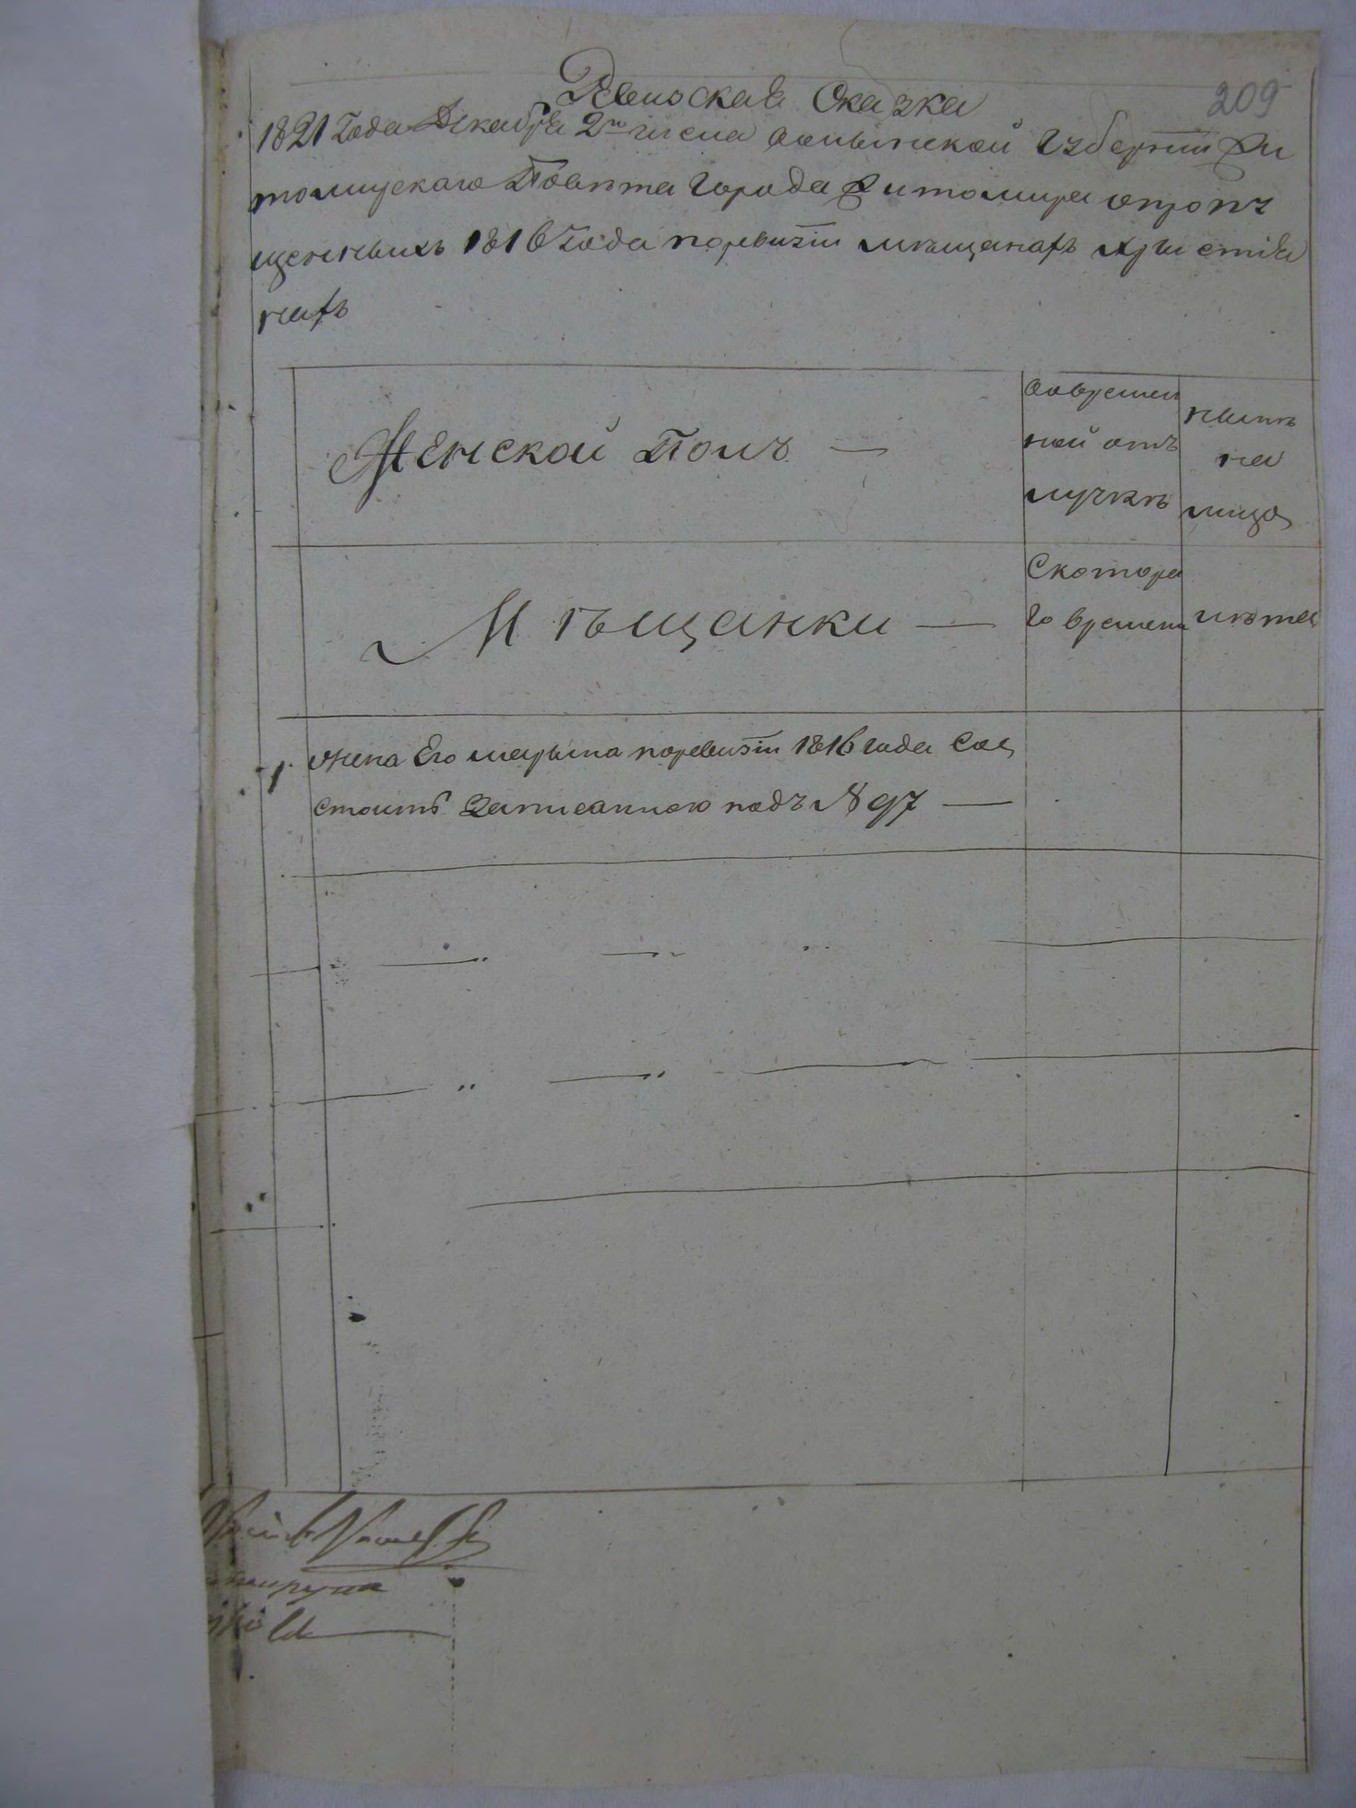 Ревизская Сказка
209
1821 Года Декабря 2го числа Волынской Губернiи Жи
томирскаго Повѣта Города Житомира о пропу
щенныхъ 1816 Года по ревизiи мѣщанахъ христiа
нахъ
Женской Полъ —
Во времен
ной от
лучкѣ
Нынѣ
на
лицо
Мѣщанки —
С котора
го времени
Лѣта
1. Жена Его Марьяна по ревизiи 1816 года Со
стоитъ Записанною подъ № 97 —